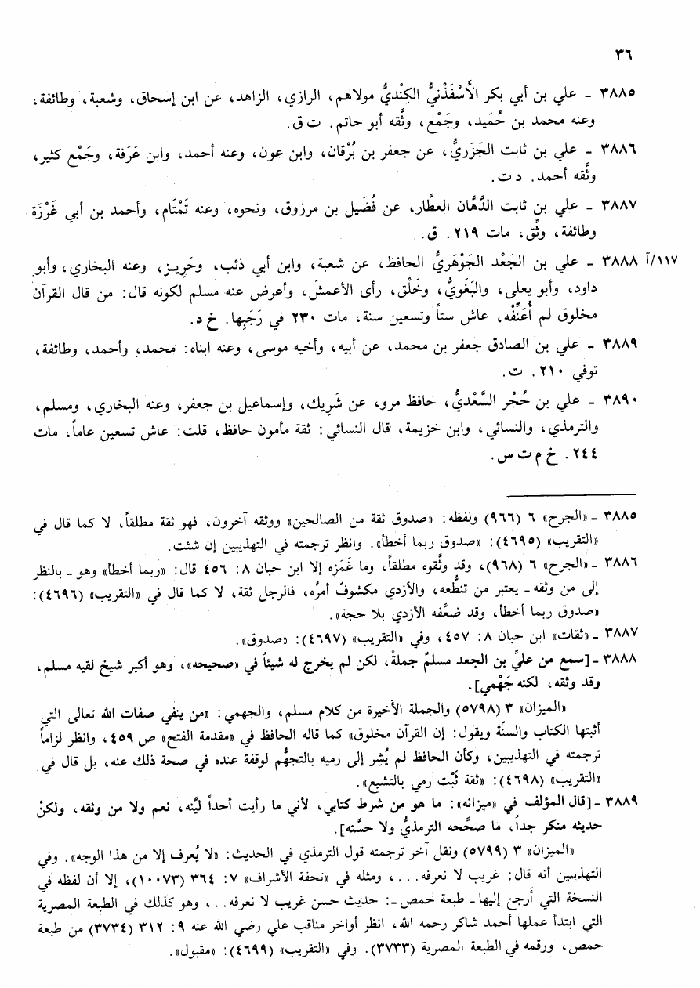 ٣٦
٣٨٨٥ - علي بن أبي بكر الأَسْفَذْنيُّ الكِنْديُّ مولاهم، الرازي، الزاهد، عن ابن إسحاق، وشعبة، وطائفة،
وعنه محمد بن حُميد، وجَمْع، وثَّقه أبو حاتم. ت ق.
٣٨٨٦ - علي بن ثابت الجَزَريُّ، عن جعفر بن بُرْقان، وابن عون، وعنه أحمد، وابن عَرَفة، وجَمْع كثير،
وثَّقه أحمد. د ت.
٣٨٨٧ - علي بن ثابت الدَّهَّان العطَّار، عن فُضَيل بن مرزوق، ونحوه، وعنه تَمْتَام، وأحمد بن أبي غَرَزة
وطائفة، وثِّق، مات ٢١٩. ق.
١١٧/آ ٣٨٨٨ - علي بن الجَعْد الجَوْهَريُّ الحافظ، عن شعبة، وابن أبي ذئب، وحَريز، وعنه البخاري، وأبو
داود، وأبو يعلى، والبَغَويُّ، وخَلْق، رأى الأعمشَ، وأعرض عنه مسلم لكونه قال: من قال القرآن
مخلوق لم أُعنِّفْه، عاش ستاً وتسعين سنة، مات ٢٣٠ في رَجَبِها. خ د.
٣٨٨٩ - علي بن الصادق جعفر بن محمد، عن أبيه، وأخيه موسى، وعنه ابناه: محمد، وأحمد، وطائفة،
توفي ٢١٠. ت.
٣٨٩٠ - علي بن حُجْر السَّعْديُّ، حافظ مرو، عن شَرِيك، وإسماعيل بن جعفر، وعنه البخاري، ومسلم،
والترمذي، والنسائي، وابن خزيمة، قال النسائي: ثقة مأمون حافظ، قلت: عاش تسعين عاماً، مات
٢٤٤. خ م ت س.
٣٨٨٥ - «الجرح» ٦ (٩٦٦) ولفظه: «صدوق ثقة من الصالحين» ووثقه آخرون، فهو ثقة مطلقاً، لا كما قال في
«التقريب» (٤٦٩٥): «صدوق ربما أخطأ». وانظر ترجمته في التهذيبين إن شئت.
٣٨٨٦ - «الجرح» ٦ (٩٦٨)، وقد وثَّقوه مطلقاً، وما غَمَزه إلا ابن حبان ٨: ٤٥٦ قال: «ربما أخطأ» وهو - بالنظر
إلى من وثقه - يعتبر من تنطُّعه، والأزدي مكشوفٌ أمرُه، فالرجل ثقة، لا كما قال في «التقريب» (٤٦٩٦):
«صدوق ربما أخطأ، وقد ضعَّفه الأزدي بلا حجة».
٣٨٨٧ - «ثقات» ابن حبان ٨: ٤٥٧، وفي «التقريب» (٤٦٩٧): «صدوق».
٣٨٨٨ - [سمع من عليِّ بن الجعد مسلمٌ جملةً، لكن لم يخرج له شيئاً في «صحيحه»، وهو أكبر شيخ لقيه مسلم،
وقد وثقه، لكنه جَهْمي].
«الميزان» ٣ (٥٧٩٨) والجملة الأخيرة من كلام مسلم، والجهمي: «من ينفي صفات الله تعالى التي
أثبتها الكتاب والسنّة ويقول: إن القرآن مخلوق» كما قاله الحافظ في «مقدمة الفتح» ص ٤٥٩، وانظر لزاماً
ترجمته في التهذيبين، وكأن الحافظ لم يُشِر إلى رميه بالتجهُّم لوقفة عنده في صحة ذلك عنه، بل قال في
«التقريب» (٤٦٩٨): «ثقة ثَبْت رمي بالتشيع».
٣٨٨٩ - [قال المؤلف في «ميزانه»: ما هو من شرط كتابي، لأني ما رأيت أحداً ليَّنه، نعم ولا من وثقه، ولكنْ
حديثه منكر جداً، ما صحَّحه الترمذيُّ ولا حسَّنه].
«الميزان» ٣ (٥٧٩٩) ونقل آخر ترجمته قول الترمذي في الحديث: «لا يُعرف إلا من هذا الوجه». وفي
التهذيبين أنه قال: غريب لا نعرفه...، ومثله في «تحفة الأشراف» ٧: ٣٦٤ (١٠٠٧٣)، إلا أن لفظه في
النسخة التي أرجع إليها - طبعة حمص -: حديث حسن غريب لا نعرفه...، وهو كذلك في الطبعة المصرية
التي ابتدأ عملها أحمد شاكر رحمه الله، انظر أواخر مناقب علي رضي الله عنه ٩: ٣١٢ (٣٧٣٤) من طبعة
حمص، ورقمه في الطبعة المصرية (٣٧٣٣). وفي «التقريب» (٤٦٩٩): «مقبول».